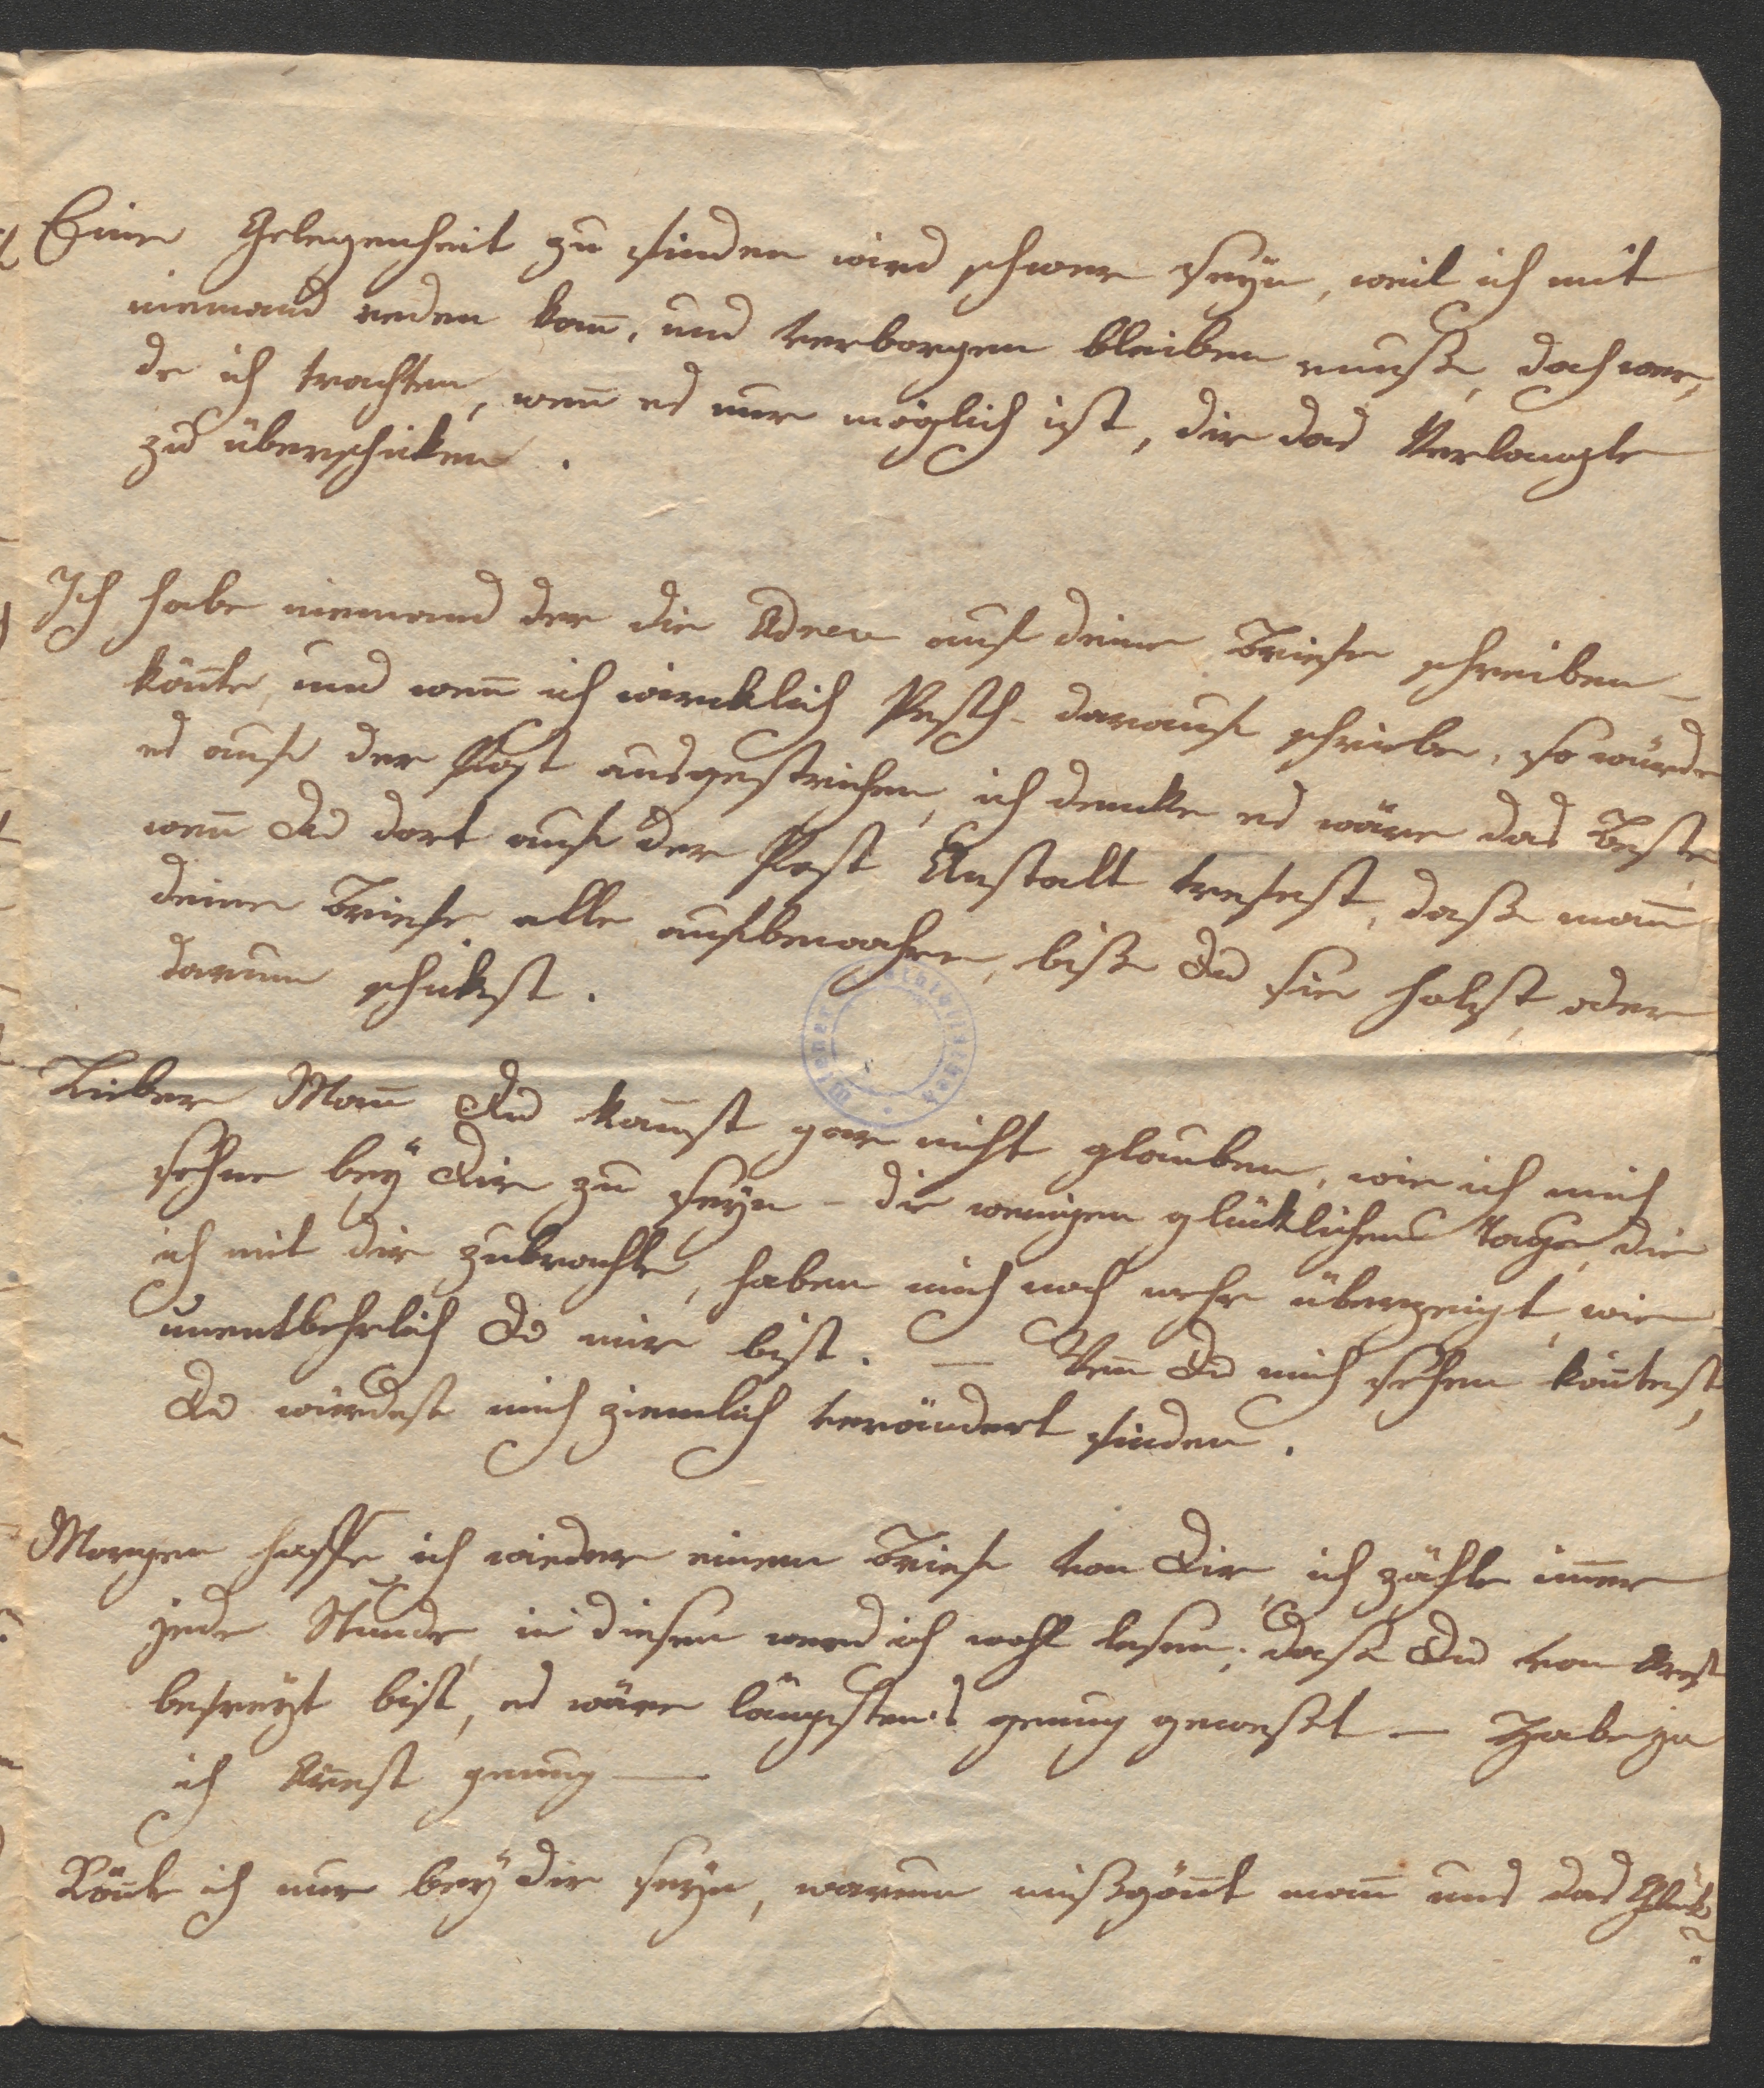 Eine Gelegenheit zu finden wird schwer seyn, weil ich mit
niemand reden kan̄, und verborgen bleiben muß, doch wer,
de ich trachten, wen̄ es nur möglich ist, dir das Verlangte
zu überschicken.
Ich habe niemand der die Adress auf deine Briefe schreiben
kön̄te, und wen̄ ich wircklich Pesth darauf schriebe, so würde
es auf der Post ausgestrichen, ich dencke es wäre das Beste
wen̄ du dort auf der Post Anstalt trefest, daß man̄
deine Briefe alle aufbewahre, biß du sie holst, oder
darum schickst.
Lieber Man̄ du kan̄st gar nicht glauben, wie ich mich
sehne beÿ dir zu seyn – die wenigen glücklichen Tage, die
ich mit dir zubrachte, haben mich noch mehr überzeugt, wie
unentbehrlich du mir bist. — Wen̄ du mich sehen kön̄test,
du würdest mich ziemlich verändert finden.
Morgen hoffe ich wieder einen Brief von dir, ich zähle im̄er
jede Stunde, in diesen werd ich wohl lesen, daß du von Arest
befreÿt bist, es wäre längstens genug geweßt — Habe ja
ich Arrest genug —
Kön̄te ich nur beÿ dir seyn, warum mißgön̄t man̄ uns das Glück
?
Wiener